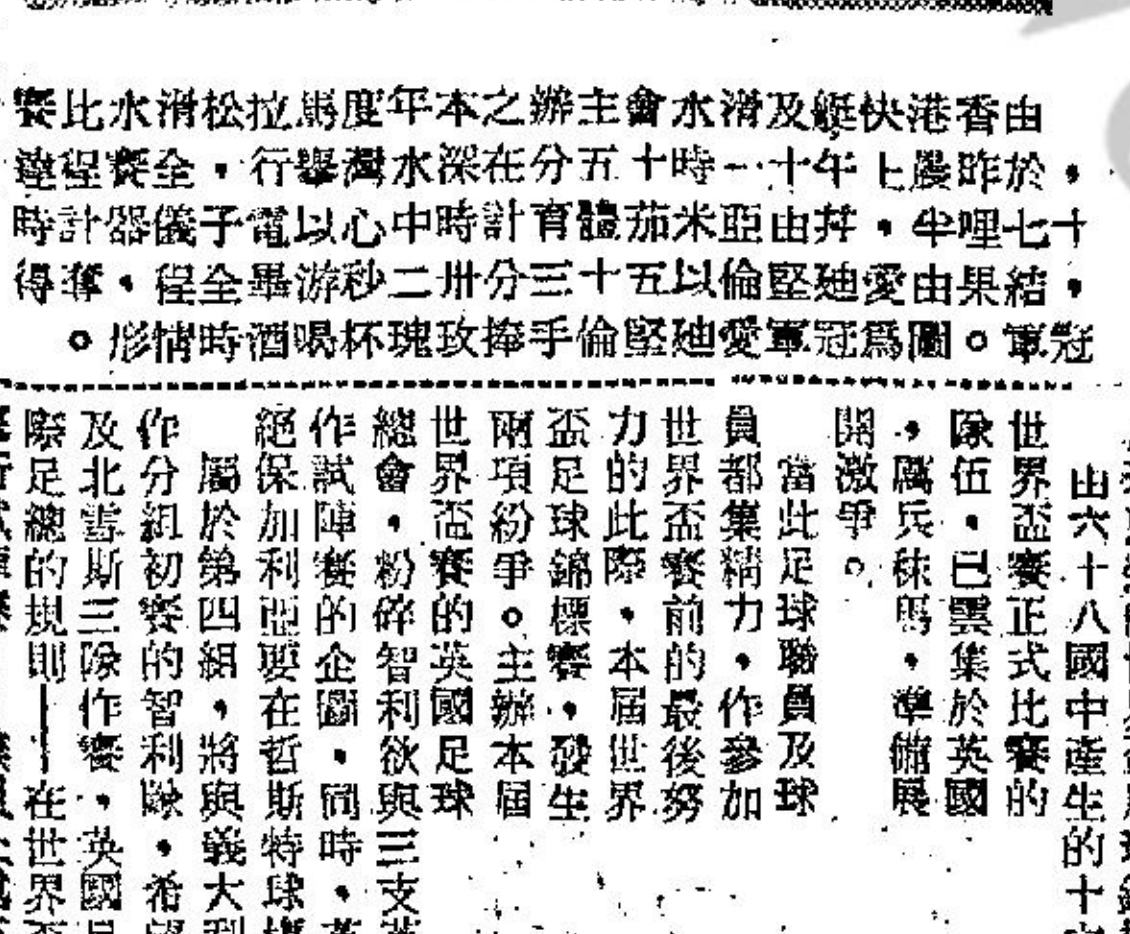 由香港快艇及滑水會主辦之本年度馬拉松滑水比賽
，於昨晨上午十一時十五分在深水灣舉行，全賽程達
十七哩半，幷由亞米茄體育計時中心以電子儀器計時
，結果由愛廸堅倫以五十三分卅二秒游畢全程，奪得
冠軍。圖爲冠軍愛廸堅倫手捧玫瑰杯喝酒時情形。
由六十八國中產生的十
世界盃賽正式比賽的
隊伍，已雲集於英國
，厲兵秣馬，準備展
開激爭。
當此足球聯員及球
員都集精力，作參加
世界盃賽前的最後努
力的此際，本屆世界
盃足球錦標賽，發生
兩項紛爭。主辦本屆
世界盃賽的英國足球
總會，粉碎智利欲與三支英
作試陣賽的企圖，同時，英
絕保加利亞要在哲斯特球
屬於第四組，將與義大利
作分組初賽的智利隊，希望
及北雪斯三隊作賽，英國足
際足總的規則——在世界盃